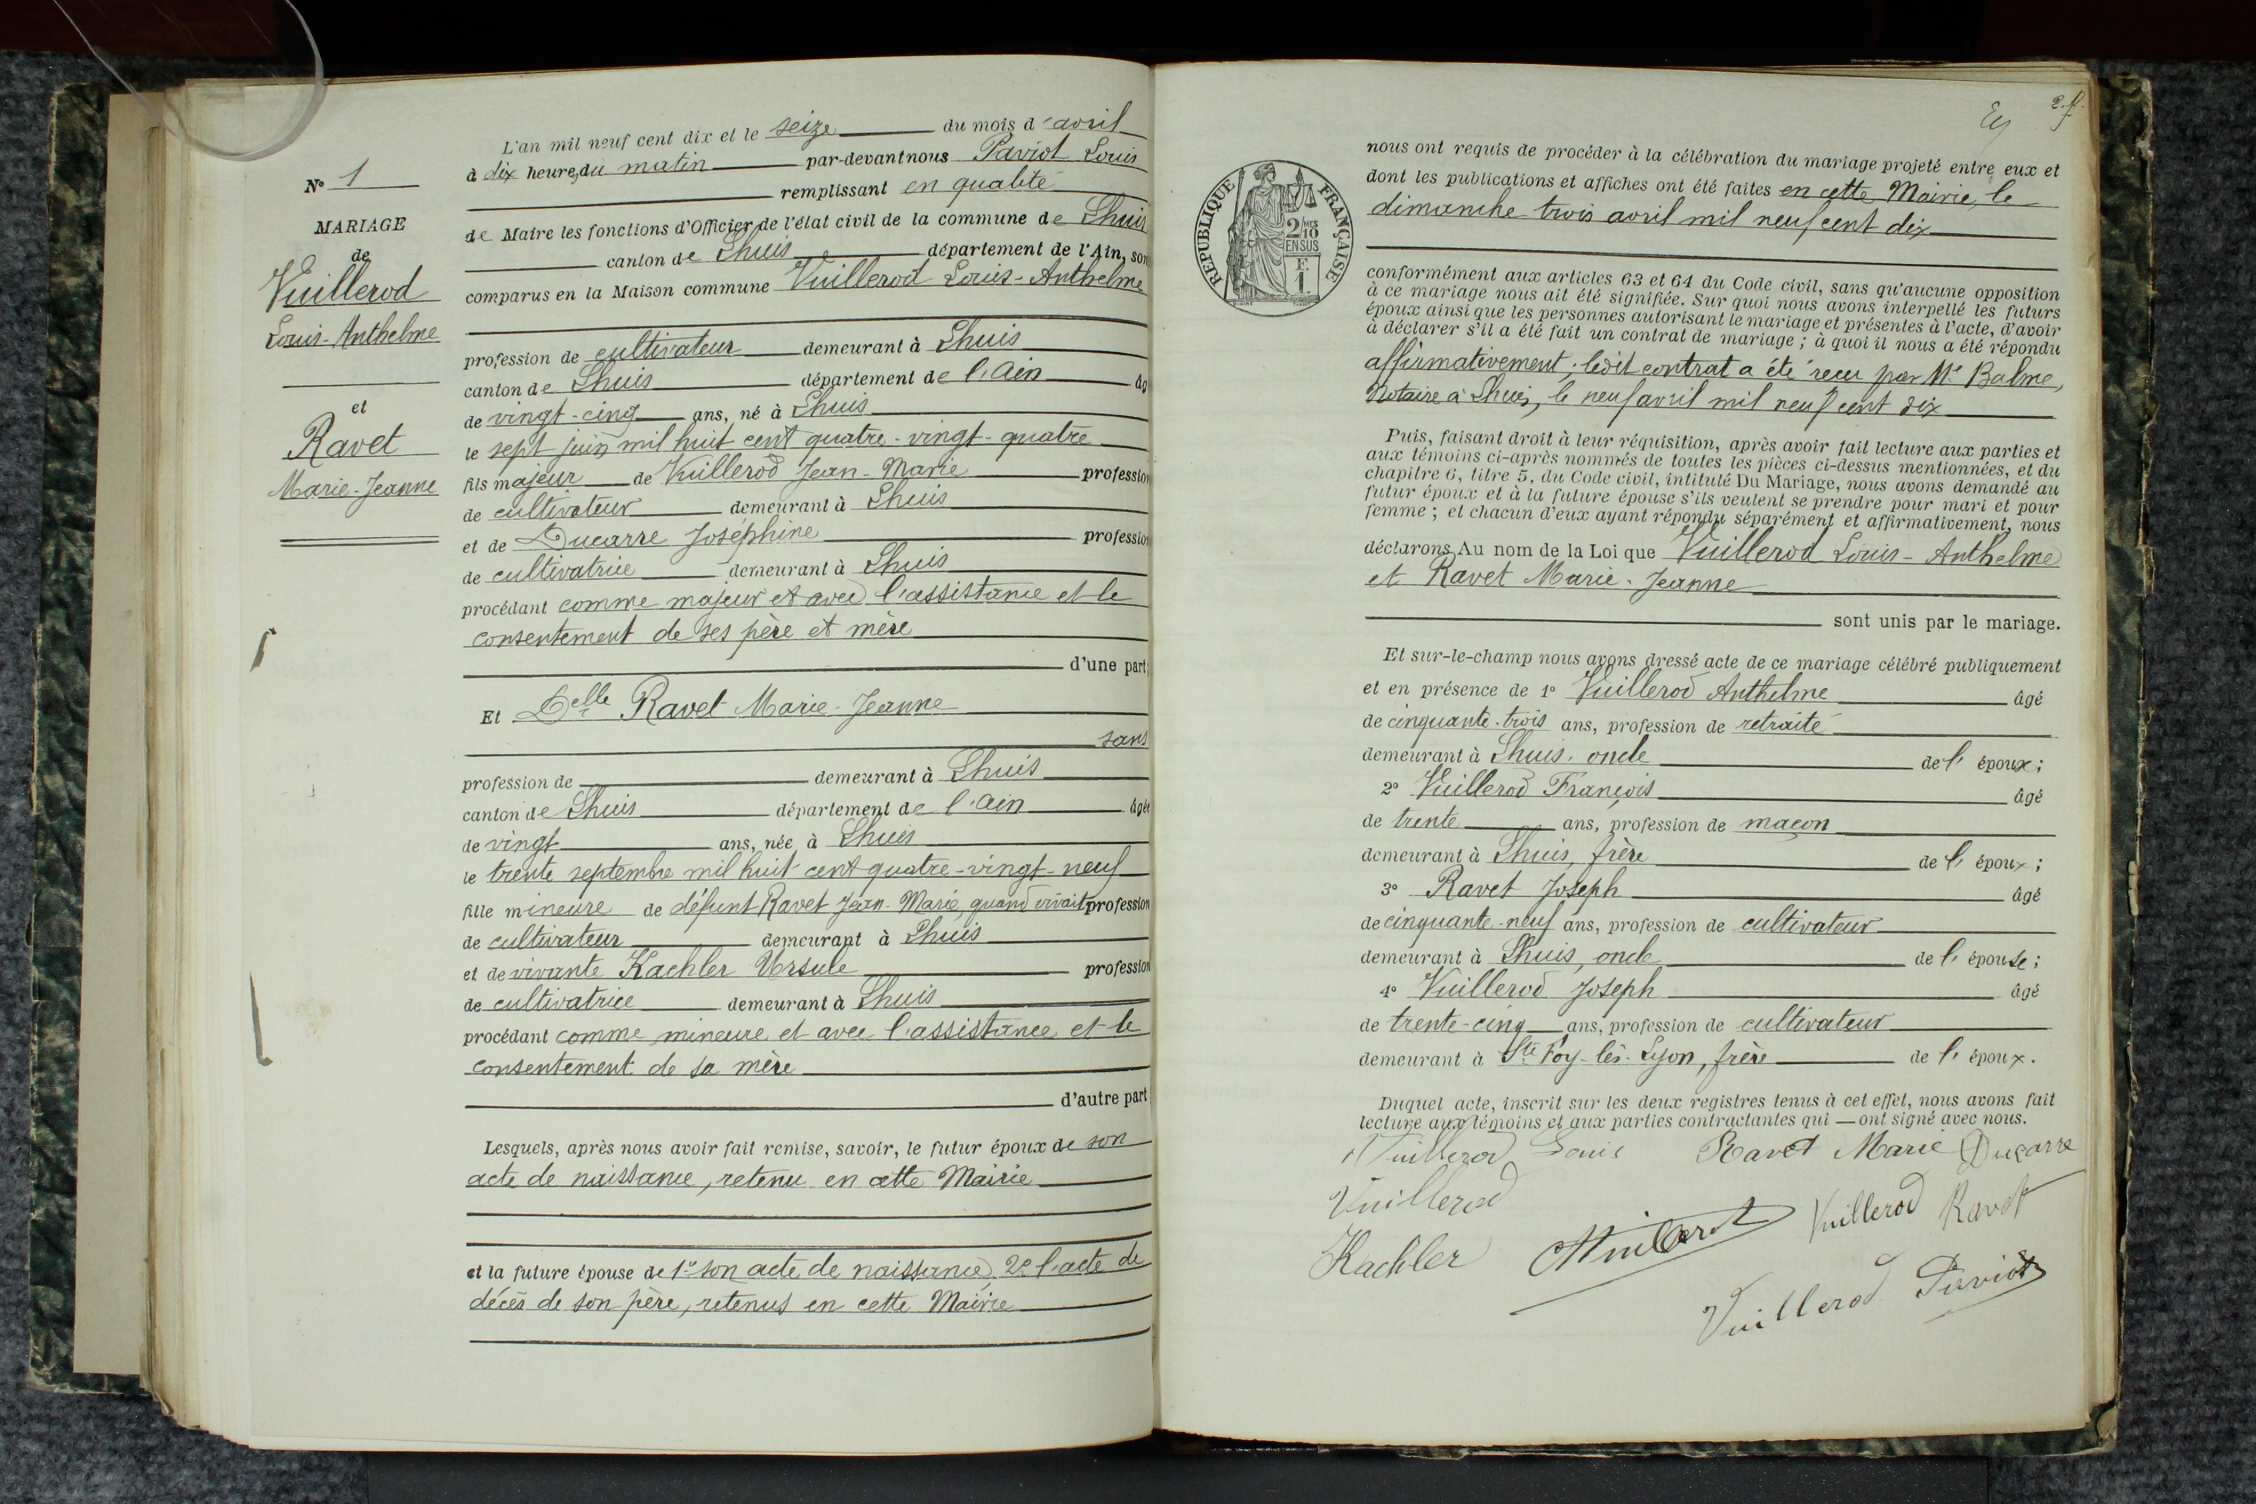 N° 1
MARIAGE
de
Vuillerod
Louis-Anthelme
et
Ravet
Marie-Jeanne
L'an mil neuf cent dix et le seize du mois d'avril
à dix heures du matin par-devant nous Paviot Louis
remplissant en qualité
de Maire les fonctions d'Officier de l'état civil de la commune de Lhuis
canton de Lhuis département de l'Ain, son
comparus en la Maison commune Vuillerod Louis-Anthelme
profession de cultivateur demeurant à Lhuis
canton de Lhuis département de l'Ain âg
de vingt-cinq ans, né à Lhuis
le sept juin mil huit cent quatre-vingt-quatre
fils majeur de Vuillerod Jean-Marie profession
de cultivateur demeurant à Lhuis
et de Ducarre Joséphine profession
de cultivatrice demeurant à Lhuis
procédant comme majeur et avec l'assistance et le
consentement de ses père et mère
d'une part;
Et Delle Ravet Marie-Jeanne
sans
profession de demeurant à Lhuis
canton de Lhuis département de l'Ain âgée
de vingt ans, née à Lhuis
le trente septembre mil huit cent quatre-vingt-neuf
fille mineure de défunt Ravet Jean-Marie, quand vivait profession
de cultivateur demeurant à Lhuis
et de vivante Kachler Ursule profession
de cultivatrice demeurant à Lhuis
procédant comme mineure et avec l'assistance et le
consentement de sa mère
d'autre part
Lesquels, après nous avoir fait remise, savoir, le futur époux de son
acte de naissance, retenu en cette Mairie
et la future épouse de 1° son acte de naissance, 2° l'acte de
décès de son père, retenus en cette Mairie
2. f.
RÉPUBLIQUE FRANÇAISE
2/10
EN SUS
F.
1.
nous ont requis de procéder à la célébration du mariage projeté entre eux et
dont les publications et affiches ont été faites en cette Mairie, le
dimanche trois avril mil neuf cent dix
conformément aux articles 63 et 64 du Code civil, sans qu'aucune opposition
à ce mariage nous ait été signifiée. Sur quoi nous avons interpellé les futurs
époux ainsi que les personnes autorisant le mariage et présentes à l'acte, d'avoir
à déclarer s'il a été fait un contrat de mariage; à quoi il nous a été répondu
affirmativement; ledit contrat a été reçu par Me Balme,
Notaire à Lhuis, le neuf avril mil neuf cent dix
Puis, faisant droit à leur réquisition, après avoir fait lecture aux parties et
aux témoins ci-après nommés de toutes les pièces ci-dessus mentionnées, et du
chapitre 6, titre 5, du Code civil, intitulé Du Mariage, nous avons demandé au
futur époux et à la future épouse s'ils veulent se prendre pour mari et pour
femme; et chacun d'eux ayant répondu séparément et affirmativement, nous
déclarons Au nom de la Loi que Vuillerod Louis-Anthelme
et Ravet Marie-Jeanne
sont unis par le mariage.
Et sur-le-champ nous avons dressé acte de ce mariage célébré publiquement
et en présence de 1° Vuillerod Anthelme âgé
de cinquante-trois ans, profession de retraité
demeurant à Lhuis, oncle de l'époux;
2° Vuillerod François âgé
de trente ans, profession de maçon
demeurant à Lhuis, frère de l'époux;
3° Ravet Joseph âgé
de cinquante-neuf ans, profession de cultivateur
demeurant à Lhuis, oncle de l'épouse;
4° Vuillerod Joseph âgé
de trente-cinq ans, profession de cultivateur
demeurant à Ste Foy-lès-Lyon, frère de l'époux.
Duquel acte, inscrit sur les deux registres tenus à cet effet, nous avons fait
lecture aux témoins et aux parties contractantes qui — ont signé avec nous.
Vuillerod Louis Ravet Marie Ducarre
Vuillerod
Kachler Vuillerod Vuillerod Ravet
Vuillerod Paviot